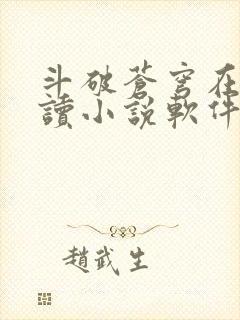 斗破蒼穹在
讀小説軟件
趙武生